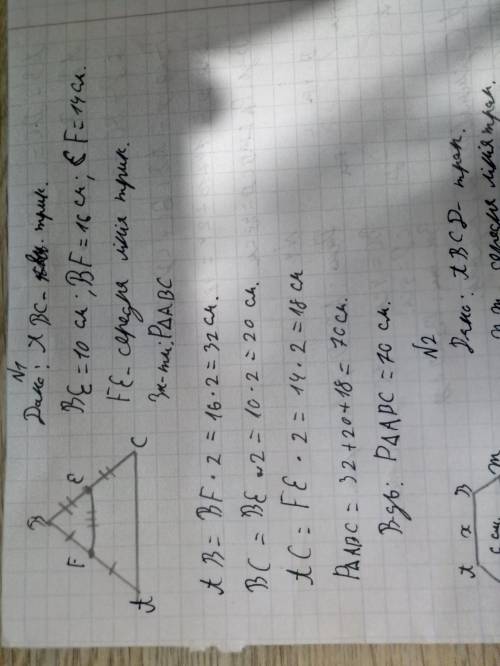 N1
Дано: ABC - трик.
BE = 10 см; BF = 16 см; EF = 14 см.
FE - середня лінія трик.
Зн-ти: P△ABC
B
F E
A C
AB = BF · 2 = 16 · 2 = 32 см.
BC = BE · 2 = 10 · 2 = 20 см.
AC = FE · 2 = 14 · 2 = 18 см
P△ABC = 32 + 20 + 18 = 70 см.
В-дь: P△ABC = 70 см.
N2
Дано: ABCD - трап.
середня лінія трап.
A x B
6 см m